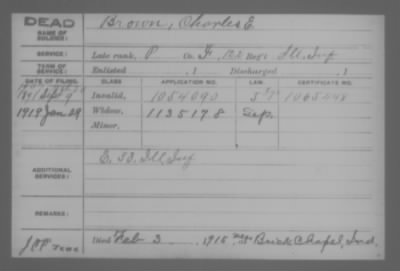 DEAD
NAME OF SOLDIER: Brown, Charles E.
SERVICE: Late rank, P Co. F, 122 Reg't Ill. Inf
TERM OF SERVICE: Enlisted , 1 Discharged , 1
DATE OF FILING. CLASS. APPLICATION NO. LAW. CERTIFICATE NO.
1891 Invalid, 1054090 1065448
1919 Jan 29 Widow, 1135178
Minor,
ADDITIONAL SERVICES: E. 53. Ill. Inf
REMARKS:
Died Feb 3 1915 near Brick Chapel, Ind.